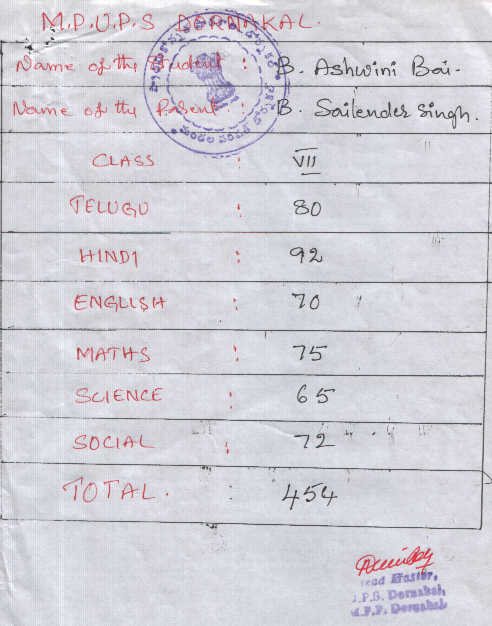 M.P.U.P.S DARNAKAL.
Name of the Student : B. Ashwini Bai.
Name of the Parent : B. Sailender Singh.
CLASS : VII
TELUGU : 80
HINDI : 92
ENGLISH : 70
MATHS : 75
SCIENCE : 65
SOCIAL : 72
TOTAL. : 454
Head Master,